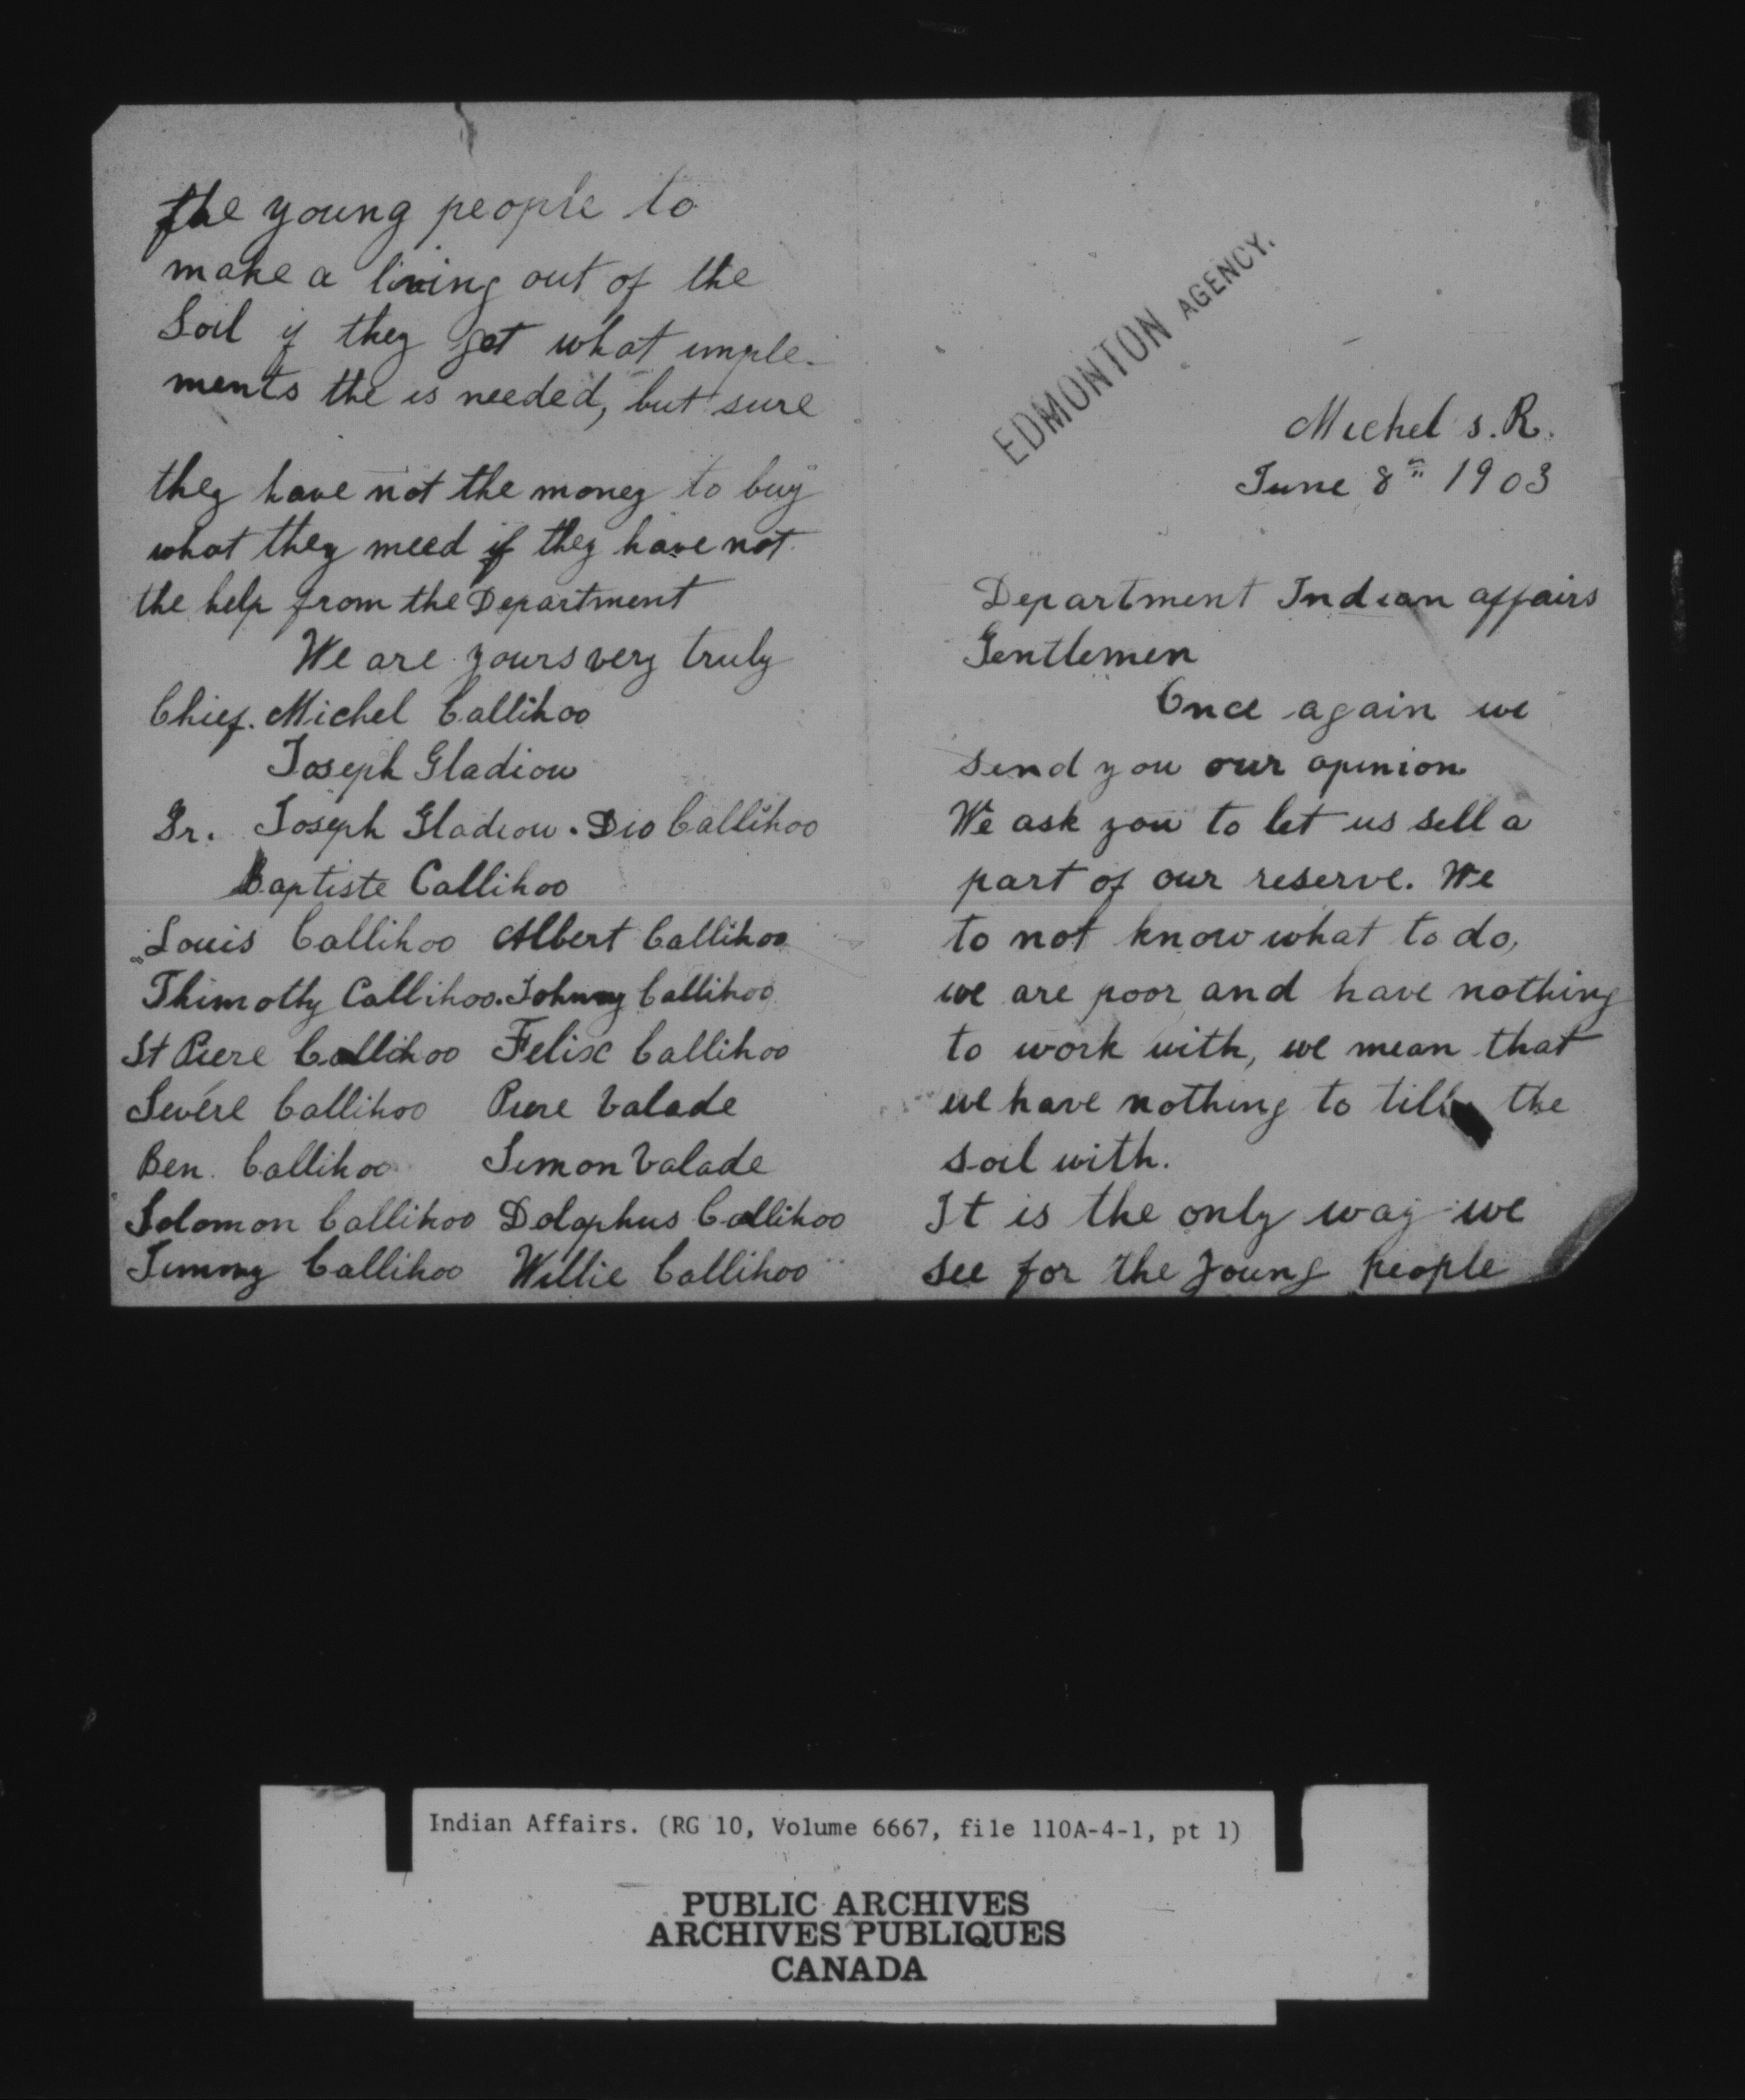 EDMONTON AGENCY.
Michel s. R.
June 8th 1903
Department Indian affairs
Gentlemen
Once again we
send you our opinion
We ask you to let us sell a
part of our reserve. We
to not know what to do,
we are poor and have nothing
to work with, we mean that
we have nothing to till the
soil with.
It is the only way we
see for the young people
the young people to
make a living out of the
Soil if they get what imple-
ments the is needed, but sure
they have not the money to buy
what they meed if they have not
the help from the Department
We are yours very truly
Chief. Michel Callihoo
Joseph Gladiou
Jr. Joseph Gladiou. Dio Callihoo
Baptiste Callihoo
Louis Callihoo Albert Callihoo
Thimothy Callihoo. Johnny Callihoo
St Piere Callihoo Felix Callihoo
Sevére Callihoo Piere Valade
Ben. Callihoo Simon Valade
Solomon Callihoo Dolaphus Callihoo
Jimmy Callihoo Willie Callihoo
Indian Affairs. (RG 10, Volume 6667, file 110A-4-1, pt 1)
PUBLIC ARCHIVES
ARCHIVES PUBLIQUES
CANADA